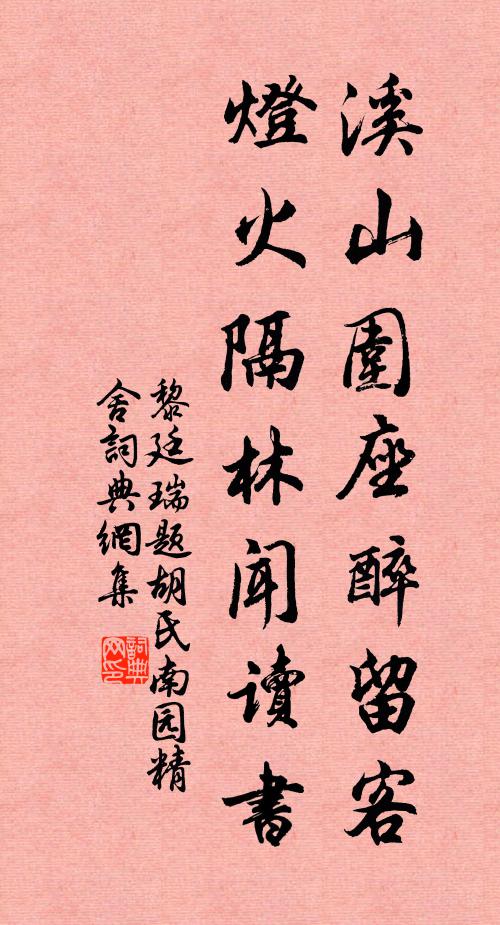 溪山圍座醉留客
燈火隔林闻读書
黎廷瑞题胡氏南园精
舍詞典網集
詞典
网印